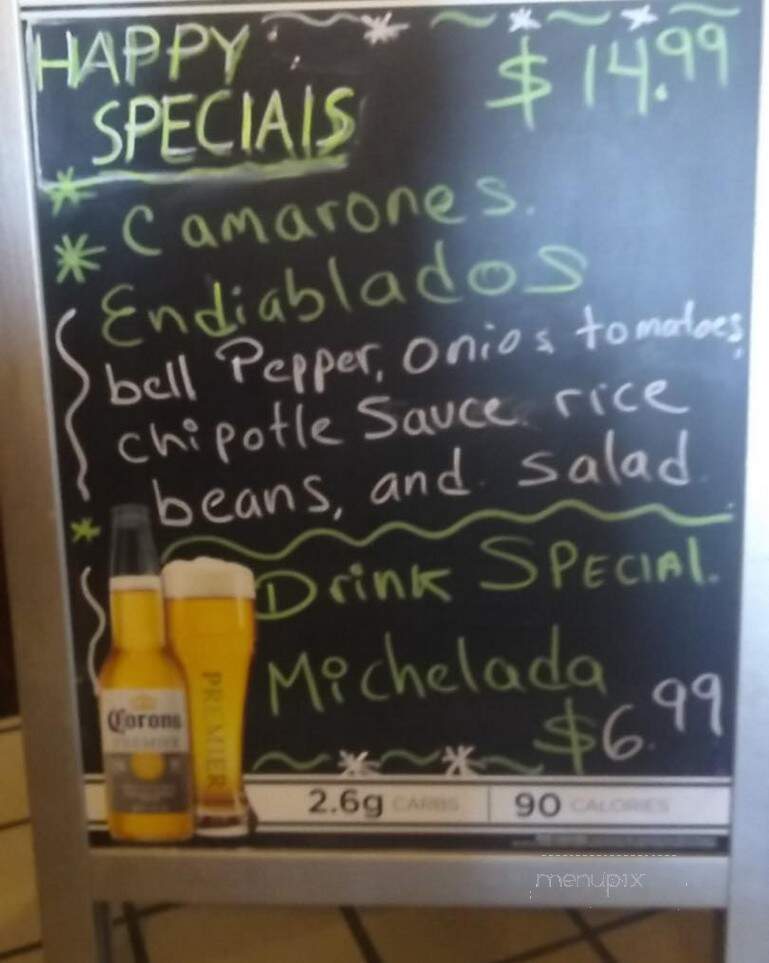 HAPPY
SPECIAlS
$14.99
* Camarones.
* Endiablados
bell Pepper, onios tomatoes,
chipotle Sauce. rice
beans, and salad.
* Drink SPECIAl.
Michelada
$6.99
Corona
PREMIER
PREMIER
2.6g CARBS | 90 CALORIES
menupix